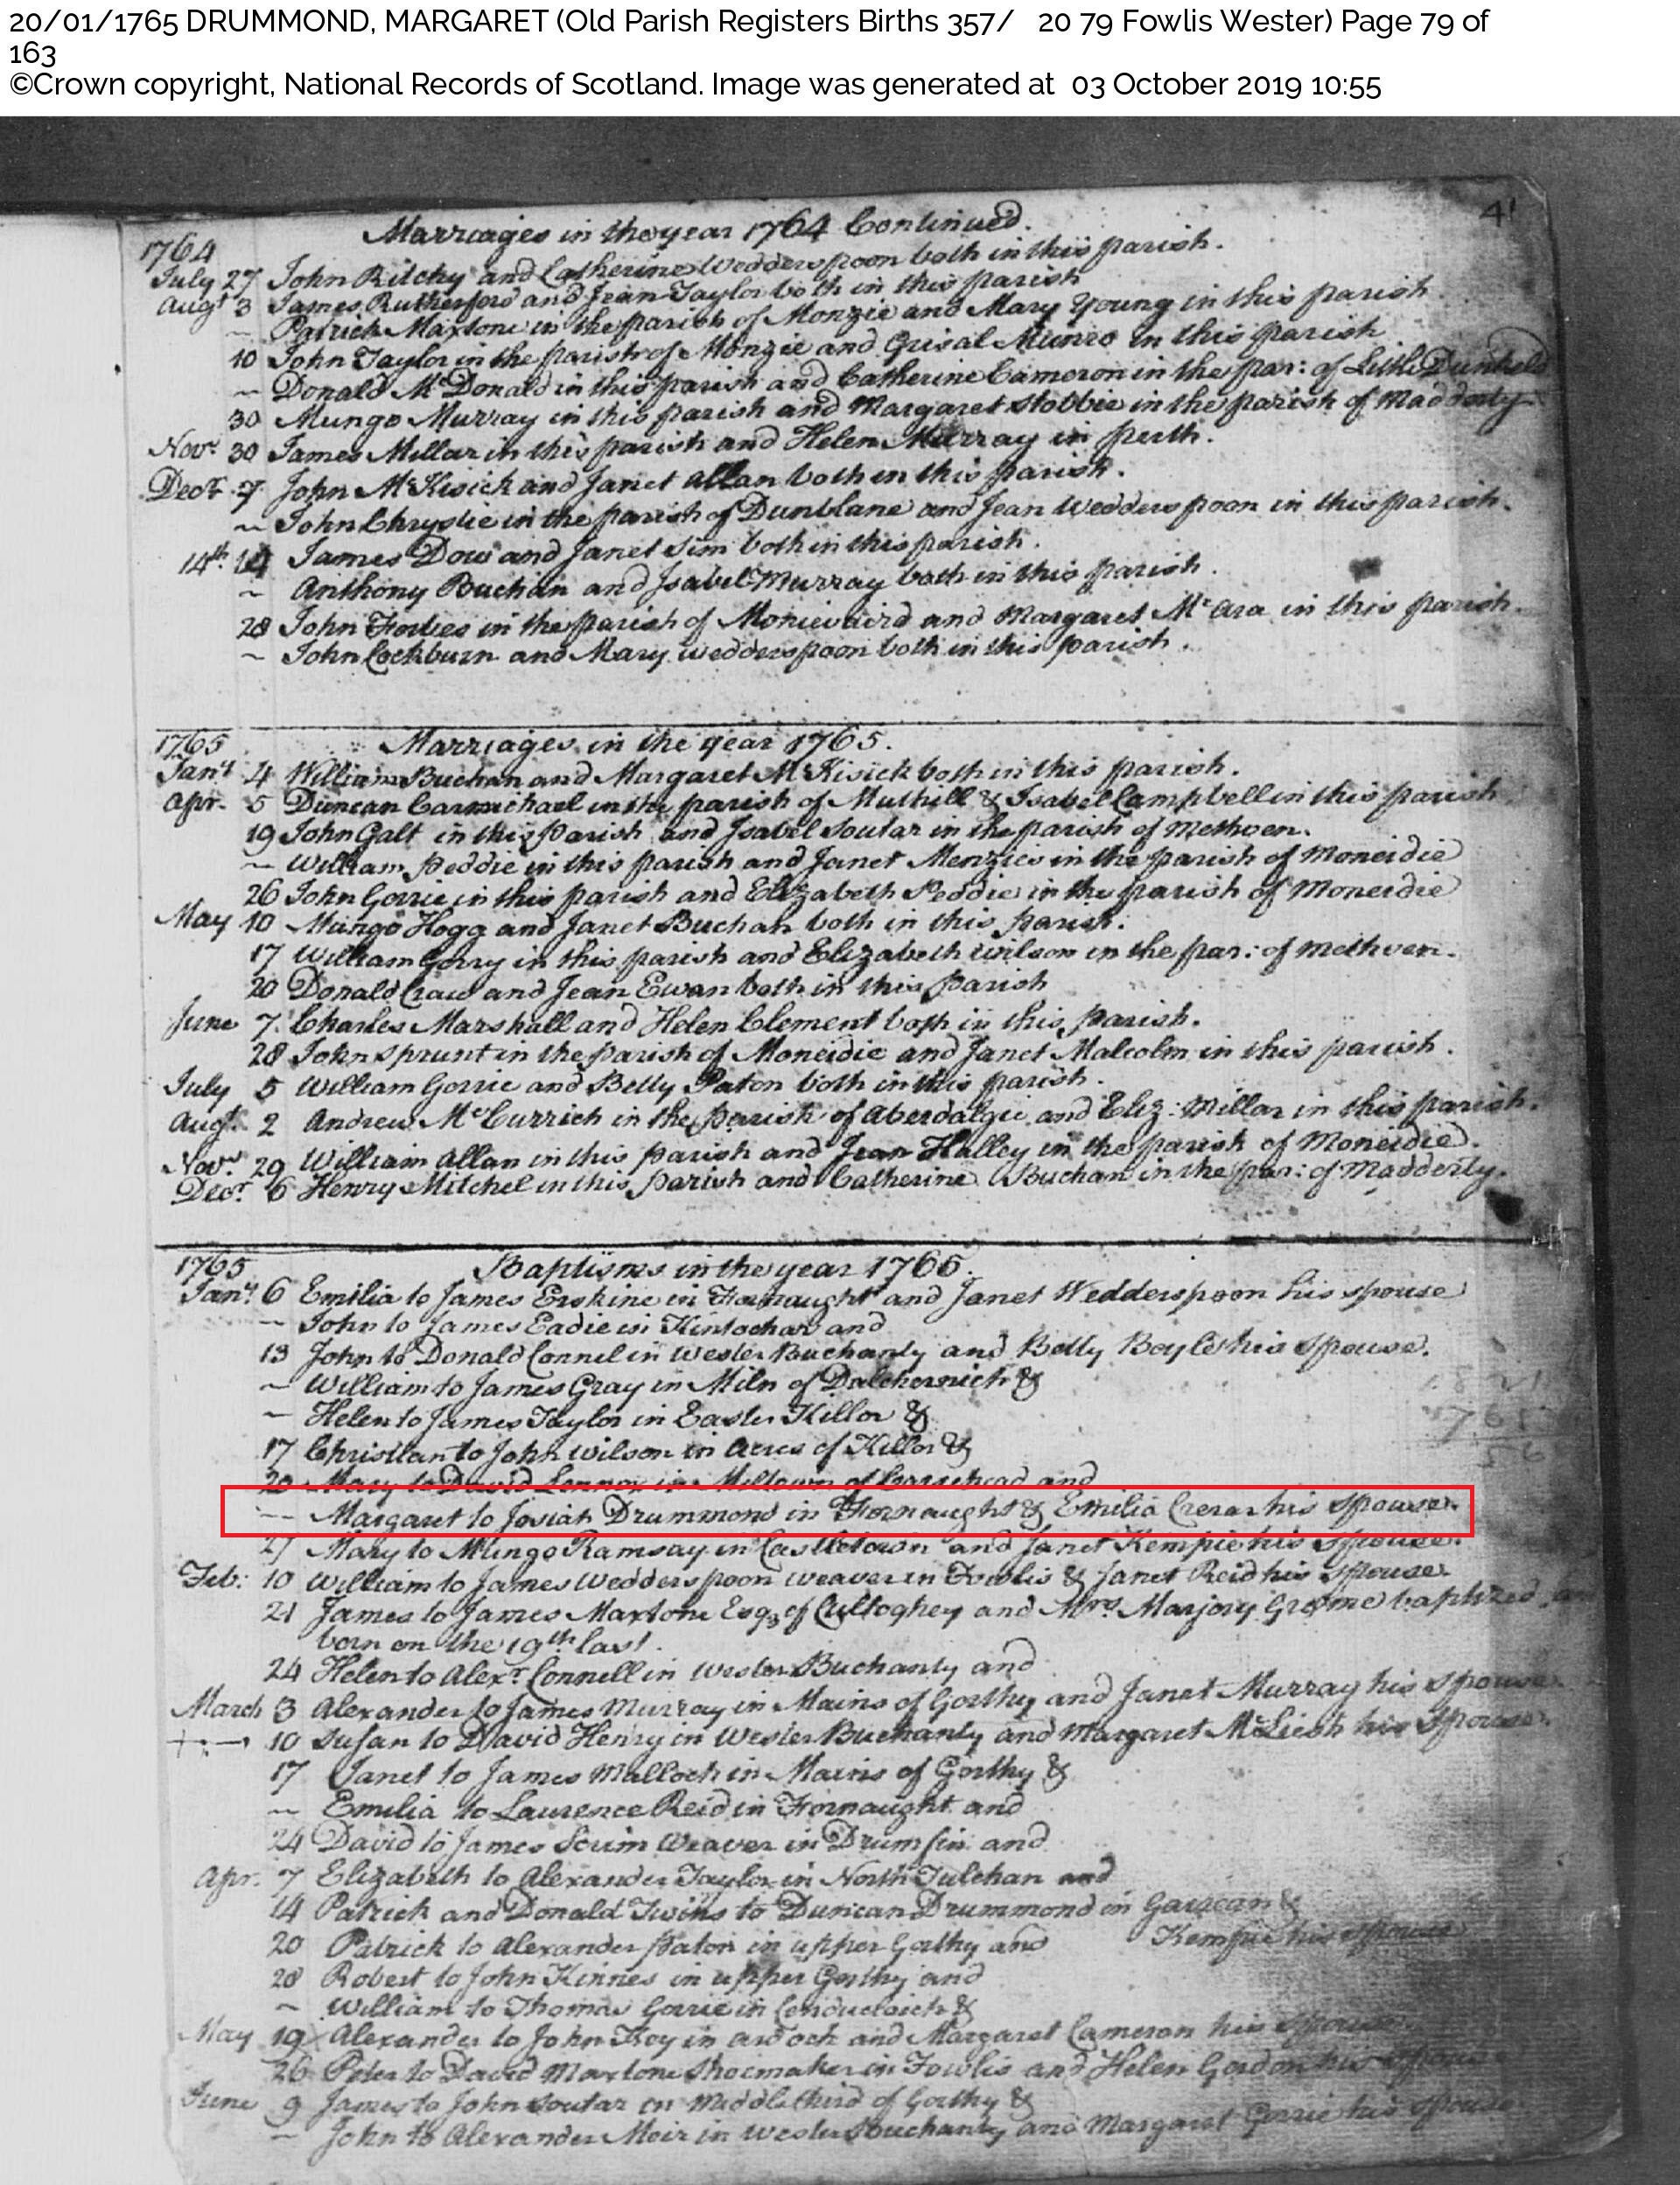 20/01/1765 DRUMMOND, MARGARET (Old Parish Registers Births 357/ 20 79 Fowlis Wester) Page 79 of
163
©Crown copyright, National Records of Scotland. Image was generated at 03 October 2019 10:55
41
Marriages in the year 1764 Continued.
1764
July 27 John Ritchy and Catherine Wedderspoon both in this parish.
Augt 3 James Rutherford and Jean Taylor both in this parish
~ Patrick Maxtone in the parish of Monzie and Mary Young in this parish
10 John Taylor in the parish of Monzie and Grisal Munro in this parish
~ Donald McDonald in this parish and Catherine Cameron in the par: of Little Dunkeld
30 Mungo Murray in this parish and Margaret Stobbie in the parish of Madderty
Novr 30 James Millar in this parish and Helen Murray in perth.
Decr 7 John McKisick and Janet Allan both in this parish.
~ John Chrystie in the parish of Dunblane and Jean Wedderspoon in this parish.
14th 14 James Dow and Janet Sim both in this parish.
~ Anthony Buchan and Isabel Murray both in this parish.
28 John Forbes in the parish of Monievaird and Margaret McAra in this parish.
~ John Cockburn and Mary Wedderspoon both in this parish.
1765 Marriages in the year 1765.
Janry 4 William Buchan and Margaret McKisick both in this parish.
Apr. 5 Duncan Carmichael in the parish of Muthill & Isabel Campbell in this parish
19 John Galt in this parish and Isabel Soutar in the parish of Methven.
~ William Peddie in this parish and Janet Menzies in the parish of Moneidie
26 John Gorrie in this parish and Elizabeth Peddie in the parish of Moneidie
May 10 Mungo Hogg and Janet Buchan both in this parish.
17 William Gorry in this parish and Elizabeth Wilson in the par: of Methven.
20 Donald Craw and Jean Ewan both in this Parish
June 7. Charles Marshall and Helen Clement both in this Parish.
28 John Sprunt in the parish of Moneidie and Janet Malcolm in this parish.
July 5 William Gorrie and Betty Paton both in this parish.
Augt. 2 Andrew McCurrich in the Parish of Aberdalgie and Eliz: Millar in this parish.
Novr. 29 William Allan in this parish and Jean Halley in the parish of Moneidie.
Decr. 6 Henry Mitchel in this Parish and Catherine Buchan in the par: of Madderty.
1765 Baptisms in the year 1765.
Janry 6 Emilia to James Erskine in Fornaught and Janet Wedderspoon his spouse
~ John to James Eadie in Kintochar and
13 John to Donald Connel in Wester Buchanty and Betty Boyle his Spouse.
~ William to James Gray in Miln of Dalchernich &
~ Helen to James Taylor in Easter Killor &
17 Christian to John Wilson in Acres of Killor &
20 Mary to David Lennox in Miltown of Corriehead and
~ Margaret to Josiah Drummond in Fornaught & Emilia Crerar his Spouse.
27 Mary to Mungo Ramsay in Castletown and Janet Kempie his Spouse.
Feb: 10 William to James Wedderspoon Weaver in Fowlis & Janet Reid his Spouse.
21 James to James Maxtone Esqr of Cultoghey and Mrs. Marjory Greme baptized
born on the 19th last.
24 Helen to Alexr. Connell in Wester Buchanty and
March 3 Alexander to James Murray in Mains of Gorthy and Janet Murray his spouse.
10 Susan to David Henry in Wester Buchanty and Margaret McLiesh his Spouse.
17 Janet to James Malloch in Mains of Gorthy &
~ Emilia to Laurence Reid in Fornaught and
24 David to James Scrim Weaver in Drumfin and
Apr. 7 Elizabeth to Alexander Taylor in North Tulchan and
14 Patrick and Donald Twins to Duncan Drummond in Garrean &
Kempie his spouse
20 Patrick to Alexander Paton in upper Gorthy and
28 Robert to John Kinnes in upper Gorthy and
~ William to Thomas Gorrie in &
May 19 Alexander to John Roy in Ardoch and Margaret Cameron his spouse
26 Peter to David Maxtone Shoemaker in Fowlis and Helen Gordon his spouse
June 9 James to John Soutar in Middlethird of Gorthy &
~ John to Alexander Moir in Wester Buchanty and Margaret Gorrie his spouse